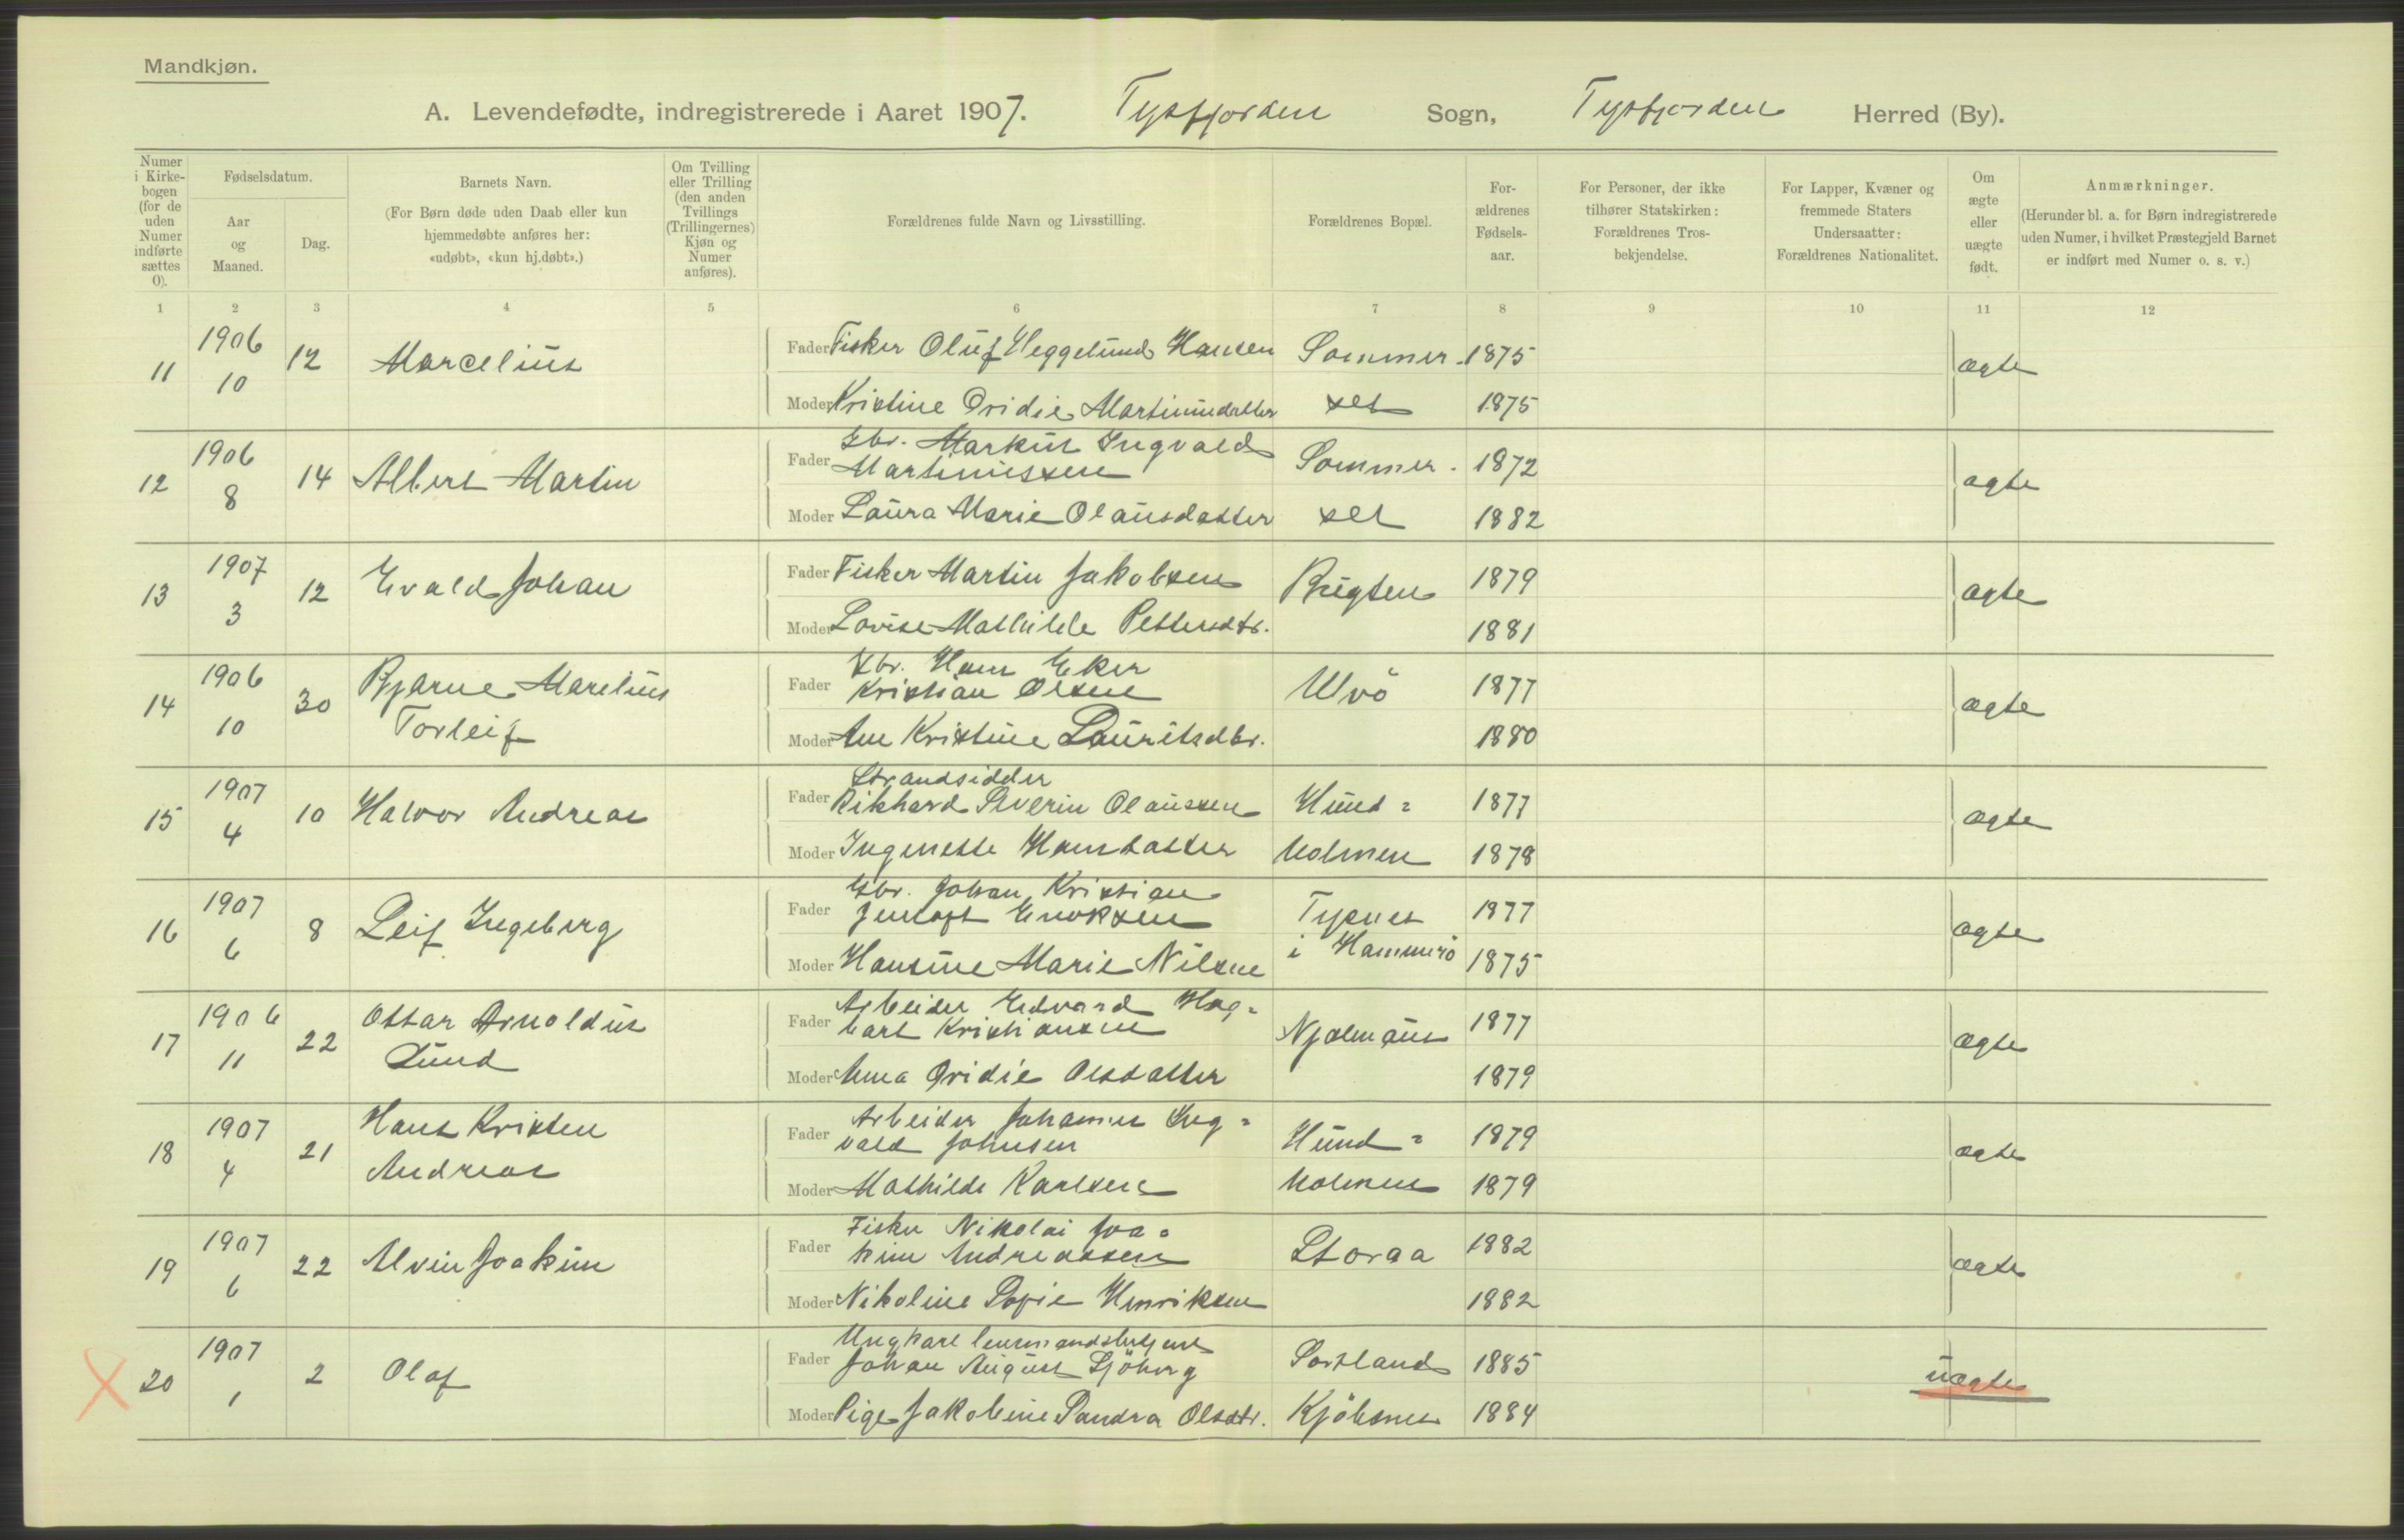 Mandkjøn.
A. Levendefødte, indregistrerede i Aaret 1907. Tysfjorden Sogn, Tysfjorden Herred (By).
Numer i Kirkebogen (for de uden Numer indførte sættes 0).
Fødselsdatum.
Aar og Maaned.
Dag.
Barnets Navn.
(For Børn døde uden Daab eller kun hjemmedøbte anføres her: «udøbt», «kun hj.døbt».)
Om Tvilling eller Trilling (den anden Tvillings (Trillingernes) Kjøn og Numer anføres).
Forældrenes fulde Navn og Livsstilling.
Forældrenes Bopæl.
Forældrenes Fødselsaar.
For Personer, der ikke tilhører Statskirken: Forældrenes Trosbekjendelse.
For Lapper, Kvæner og fremmede Staters Undersaatter: Forældrenes Nationalitet.
Om ægte eller uægte født.
Anmærkninger.
(Herunder bl. a. for Børn indregistrerede uden Numer, i hvilket Præstegjeld Barnet er indført med Numer o. s. v.)
1 2 3 4 5 6 7 8 9 10 11 12
11 1906 10 12 Marcelius
Fader Fisker Oluf Heggelund Hansen Sommer- 1875 ægte
Moder Kristine Ovidie Martinusdatter set 1875
12 1906 8 14 Albert Martin
Fader Gbr. Markus Ingvald
Martinussen Sommer- 1872 ægte
Moder Laura Marie Olausdatter set 1882
13 1907 3 12 Evald Johan
Fader Fisker Martin Jakobsen 1879 ægte
Moder Lovise Mathilde Pettersdtr. 1881
14 1906 10 30 Bjarne Marelius
Torleif
Fader Gbr. Hans Eker
Kristian Olsen Ulvö 1877 ægte
Moder Ane Kristine Lauritsdtr. 1880
15 1907 4 10 Halvor Andreas
Fader Strandsidder
Rikhard Severin Olaussen Hund= 1877 ægte
Moder Ingenette Hansdatter holmen 1878
16 1907 6 8 Leif Ingeberg
Fader Gbr. Johan Kristian
Jentoft Enoksen Tysnes 1877 ægte
Moder Hansine Marie Nilsen i Hammerö 1875
17 1906 11 22 Ottar Arnoldus
Lund
Fader Arbeider Edvard Hag=
bart Kristiansen 1877 ægte
Moder Anna Ovidie Olsdatter 1879
18 1907 4 21 Hans Kristen
Andreas
Fader Arbeider Johannes Ing=
vald Johnsen Hund= 1879 ægte
Moder Mathilde Karlsen holmen 1879
19 1907 6 22 Alvin Joakim
Fader Fisker Nikolai Joa=
kim Andreassen Storaa 1882 ægte
Moder Nikoline Sofie Henriksen 1882
20 1907 1 2 Olaf
Fader Ungkarl lensmandsbetjent
Johan August Sjöberg Sortland 1885 uægte
Moder Pige Jakobine Sandra Olsdtr. Kjöbsnes 1884